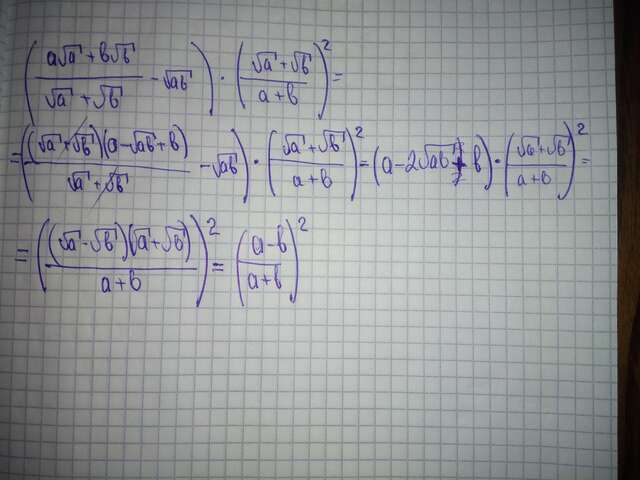 ((a√a + b√b)/(√a + √b) - √ab) · ((√a + √b)/(a + b))² =
= ((√a + √b)(a - √ab + b)/(√a + √b) - √ab) · ((√a + √b)/(a + b))² = (a - 2√ab + b) · ((√a + √b)/(a + b))² =
= ((√a - √b)(√a + √b)/(a + b))² = ((a - b)/(a + b))²